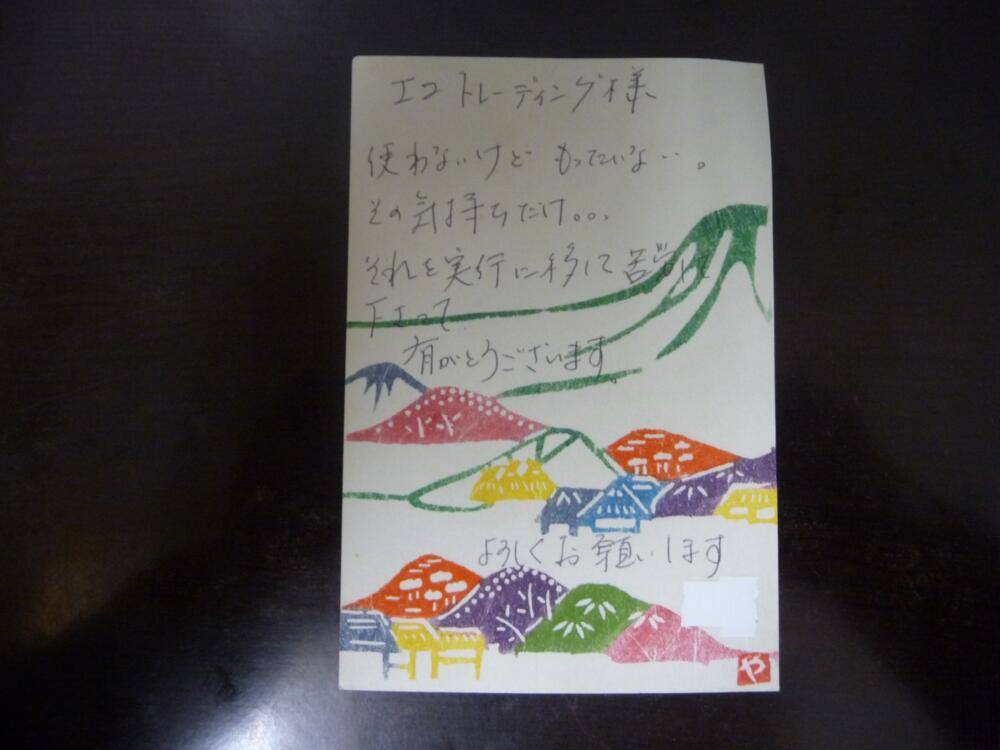 エコトレーディング様
使わないけど もったいない…。
その気持ちだけ。。。
それを実行に移して苦労して
下さって、
有がとうございます。
よろしくお願いします
や